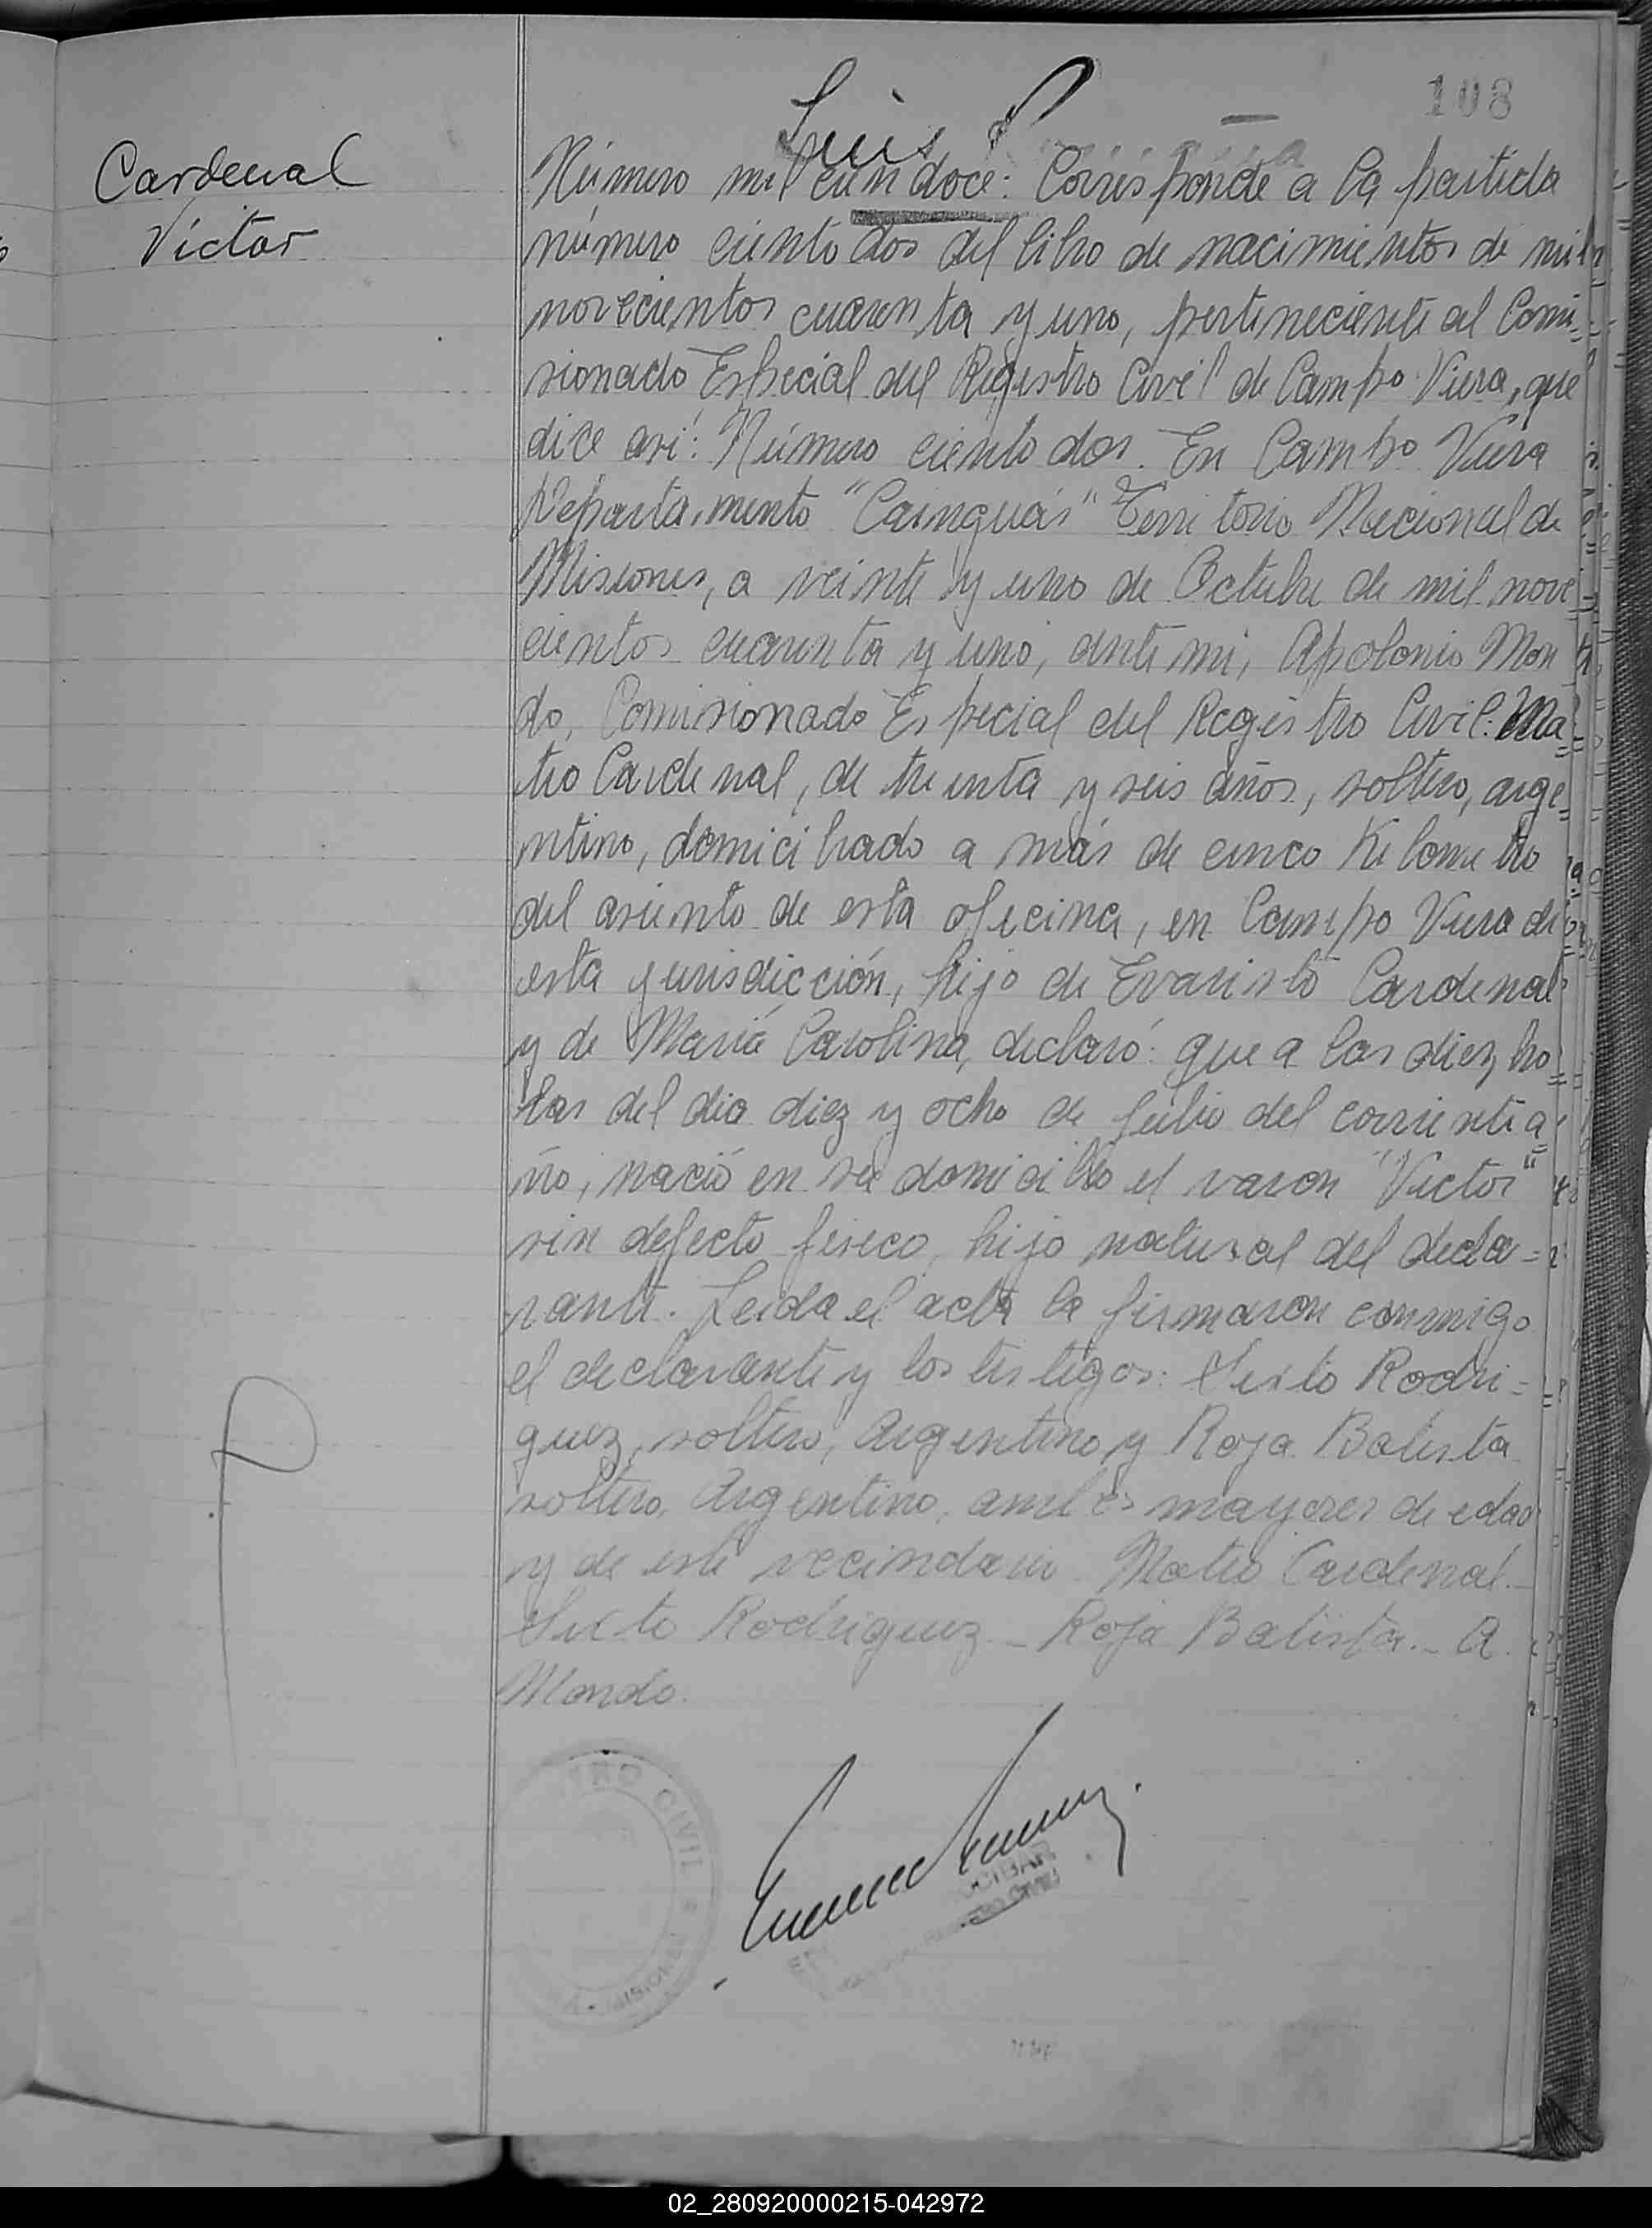 108
Luis P
Cardenal
Víctor
Número mil cien doce: Corresponde a la partida
número ciento dos del libro de nacimientos de mil
novecientos cuarenta y uno, perteneciente al Comi=
sionado Especial del Registro Civil de Campo Viera, que
dice así: Número ciento dos. En Campo Viera
Departamento "Cainguás" Territorio Nacional de
Misiones, a veinte y uno de Octubre de mil nove=
cientos cuarenta y uno, ante mi, Apolonio Mon
do, Comisionado Especial del Registro Civil: Ma=
teo Cardenal, de treinta y seis años, soltero, arge=
ntino, domiciliado a más de cinco Kilometro
del asiento de esta oficina, en Campo Viera de
esta yurisdicción, hijo de Evaristo Cardenal
y de María Carolina, declaró: que a las diez ho=
ras del dia diez y ocho de Julio del corriente a=
ño, nació en su domicilio el varon "Victor"
sin defecto fisico, hijo natural del decla=
rante. Leida el acta la firmaron conmigo
el declarante y los testigos: Sixto Rodri=
guez, soltero, Argentino y Roja Batista
soltero, Argentino, ambos mayores de edad
y de este vecindario. Mateo Cardenal.-
Sixto Rodriguez - Roja Batista.- A.
Mondo.
CIVIL
MISIONES
02_280920000215-042972